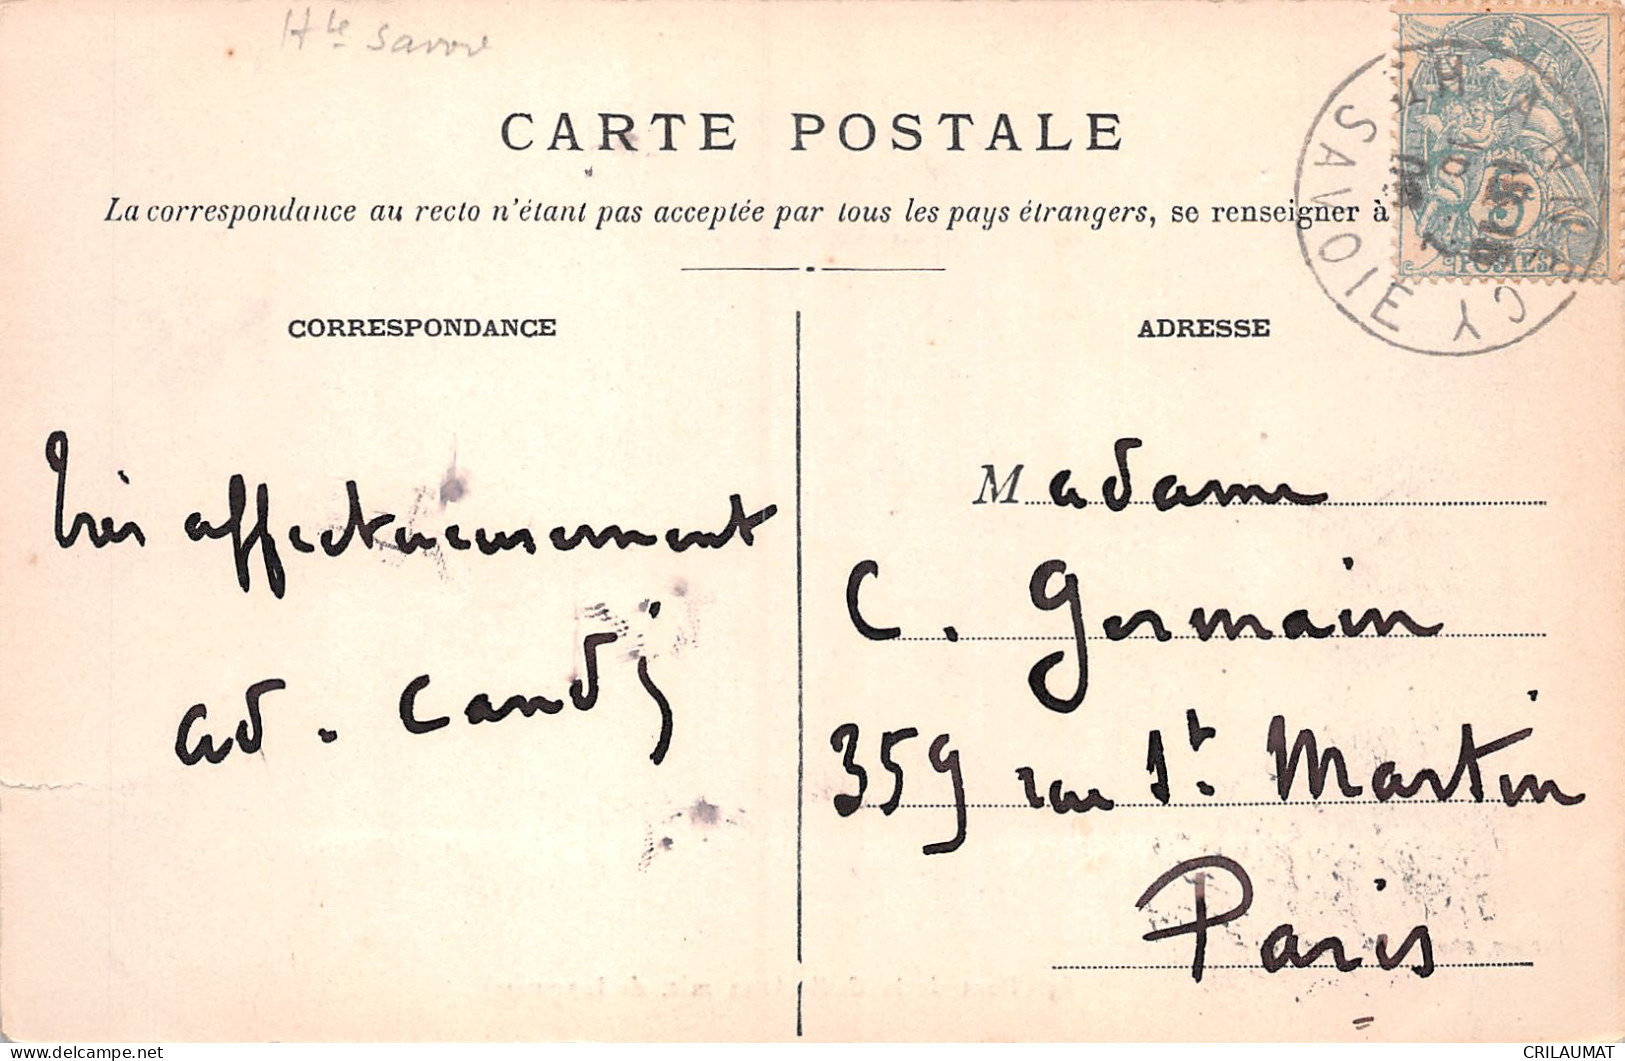 Hte Savoie
CARTE POSTALE
La correspondance au recto n'étant pas acceptée par tous les pays étrangers, se renseigner à
CORRESPONDANCE
Très affectueusement
ad. Candj
ADRESSE
Madame
C. Germain
359 rue St. Martin
Paris
ANNECY
HTE SAVOIE
5
POSTES
CRILAUMAT